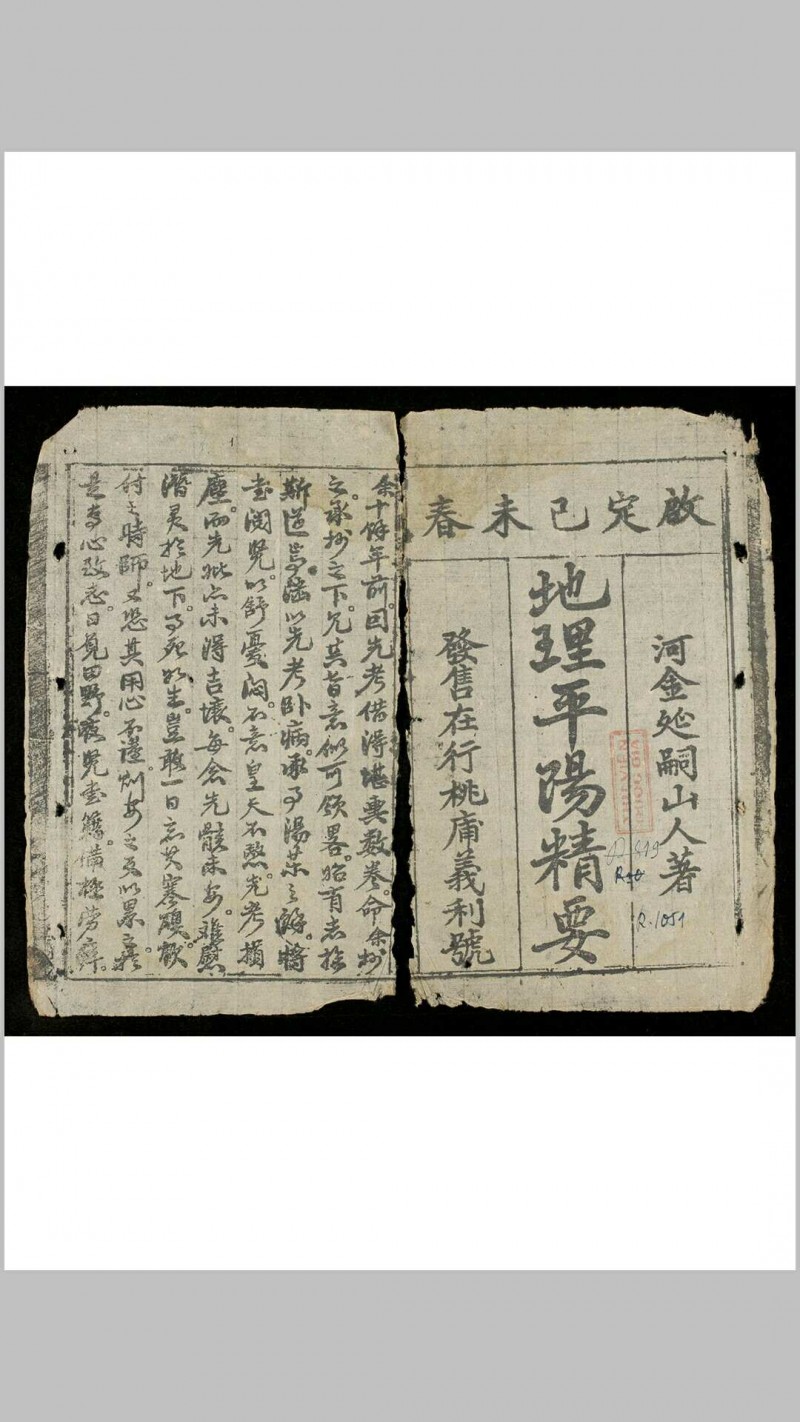 啟定己未春
河金延嗣山人著
地理平陽精要
發售在行桃庯義利號
R.1051
余十餘年前。因先考借得堪輿數卷。命余抄
之。承抄之下。見其旨意似可領畧。始有志於
斯道焉。以先考卧病。承事湯藥之餘。將
書閱覽。以舒憂悶。不意皇天不憖。先考損
塵。而先妣亦未得吉壤。每念先骸未安。難慰
潛灵於地下。事死如生。豈敢一日忘其寢。
付之時師。又恐其用心不謹。則安之反以累之。於
是專心致志。日覓田野。夜覽書籍。備極勞瘁。